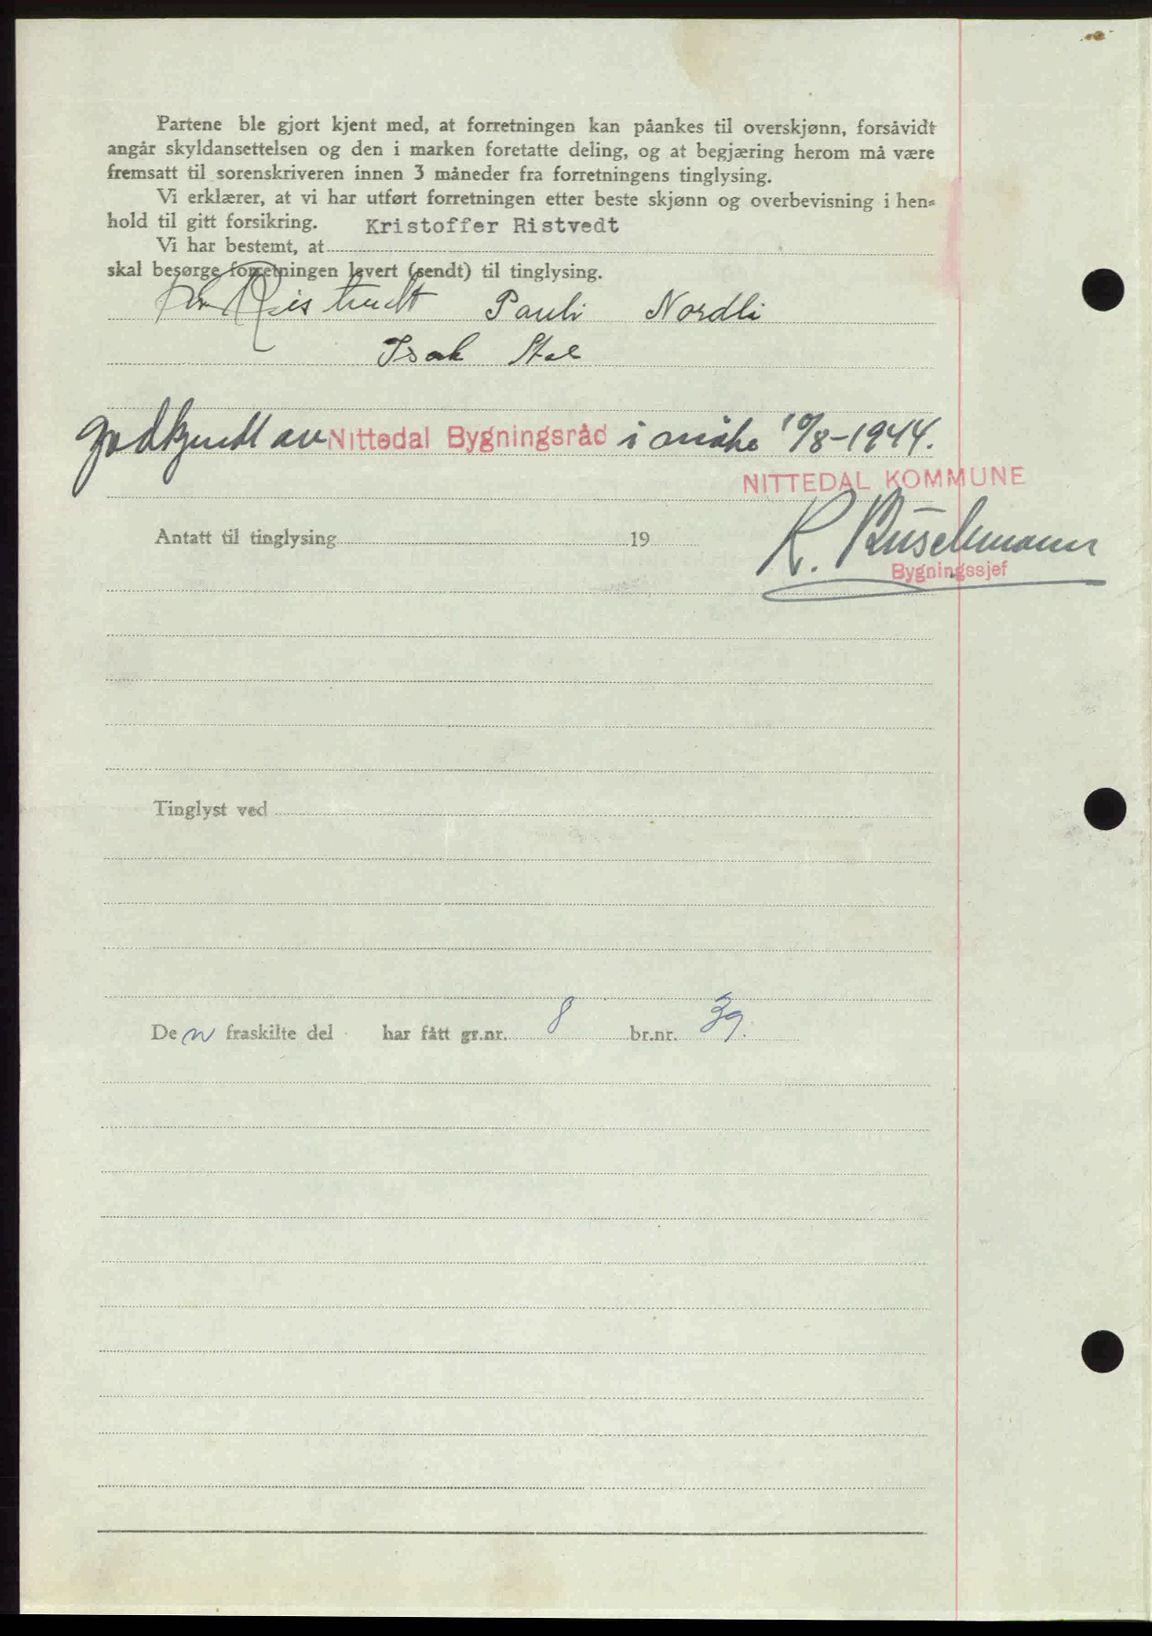 Partene ble gjort kjent med, at forretningen kan påankes til overskjønn, forsåvidt
angår skyldansettelsen og den i marken foretatte deling, og at begjæring herom må være
fremsatt til sorenskriveren innen 3 måneder fra forretningens tinglysing.
Vi erklærer, at vi har utført forretningen etter beste skjønn og overbevisning i hen=
hold til gitt forsikring. Kristoffer Ristvedt
Vi har bestemt, at
skal besørge forretningen levert (sendt) til tinglysing.
Ristvedt Pauli Nordli
Isak
godkjendt av Nittedal Bygningsråd i møte 10/8-1944.
NITTEDAL KOMMUNE
Antatt til tinglysing 19
R. Buschmann
Bygningssjef
Tinglyst ved
Den fraskilte del har fått gr.nr. 8 br.nr. 39.